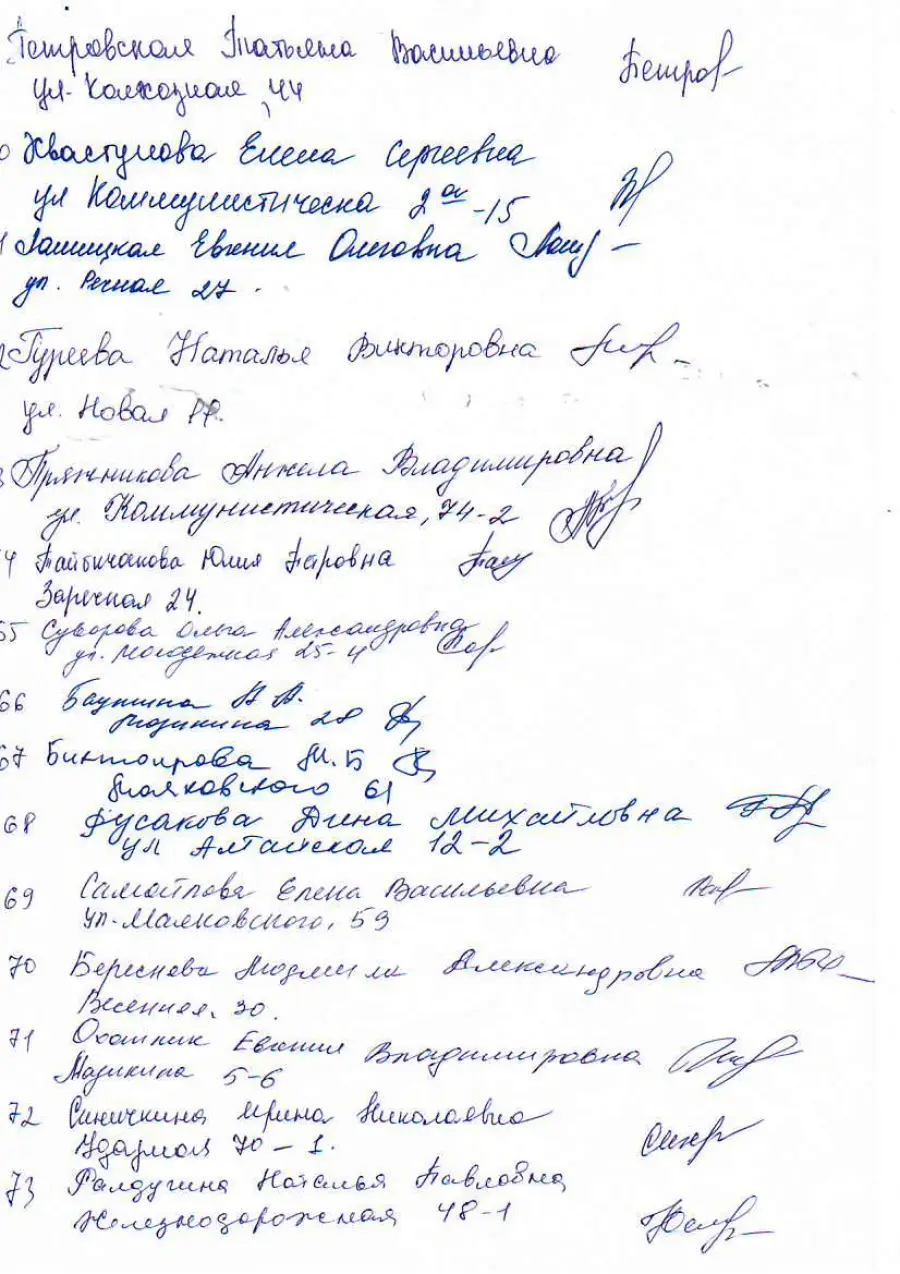 Петровская Татьяна Васильевна Петров
ул. Колхозная, 44
Хвастунова Елена Сергеевна
ул Коммунистическа 2 а - 15
Евгения Олеговна
ул. Речная 27.
Гуреева Наталья Викторовна
ул. Новая
Пряничникова Анжела Владимировна
ул. Коммунистическая, 74-2
4 Юлия Петровна
Заречная 24.
65 Суворова Ольга Александровна
ул. Молодежная 25-4
66 Н А.
Мозикина 28
67 М.Б
Маяковского 61
68 Русакова Дина Михайловна
ул Алтайская 12-2
69 Самойлова Елена Васильевна
ул. Маяковского, 59
70 Береснева Людмила Александровна
Весенняя, 30.
71 Евгения Владимировна
5-6
72 Синичкина Ирина Николаевна
Ударная 70-1.
73 Ралдугина Наталья Павловна
Железнодорожная 48-1